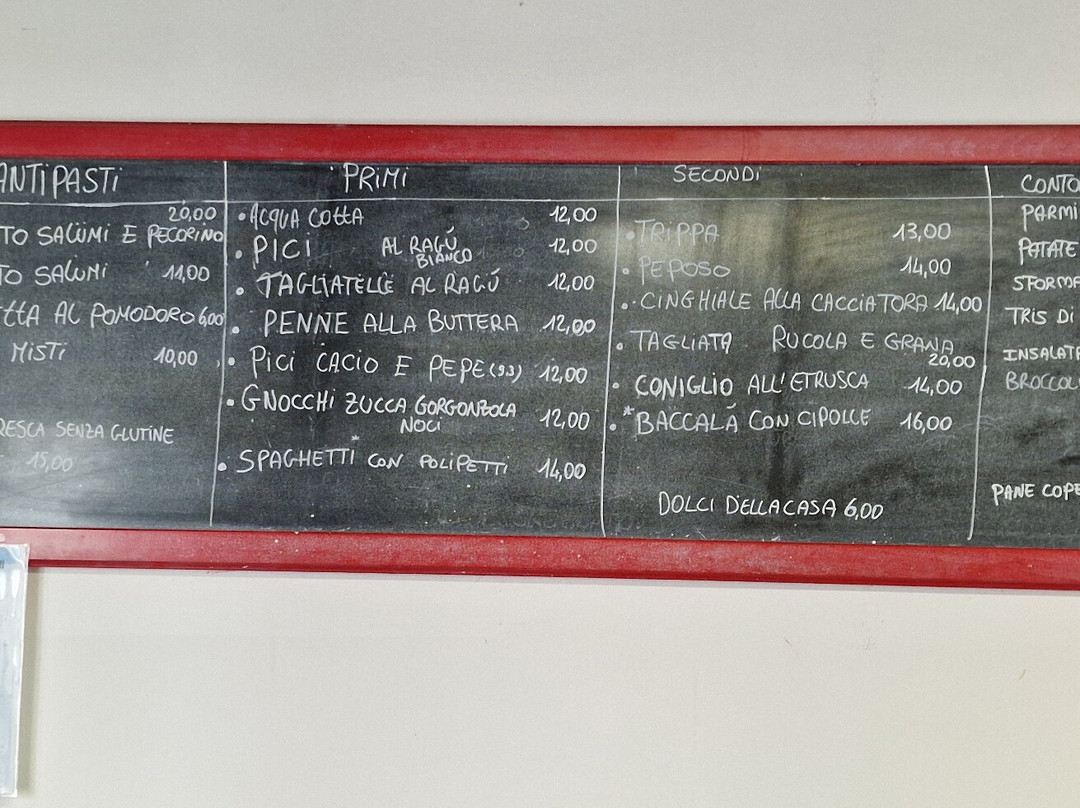 ANTIPASTI
20,00
TO SALUMI E PECORINO
TO SALUMI 11,00
TTA AL POMODORO 6,00
MISTI 10,00
RESCA SENZA GLUTINE
15,00
PRIMI
• ACQUA COTTA 12,00
• PICI AL RAGÚ 12,00
BIANCO
• TAGLIATELLE AL RAGÚ 12,00
• PENNE ALLA BUTTERA 12,00
• PICI CACIO E PEPE (9.3) 12,00
• GNOCCHI ZUCCA GORGONZOLA
NOCI 12,00
• SPAGHETTI* CON POLIPETTI 14,00
SECONDI
• TRIPPA 13,00
• PEPOSO 14,00
• CINGHIALE ALLA CACCIATORA 14,00
• TAGLIATA RUCOLA E GRANA
20,00
• CONIGLIO ALL'ETRUSCA 14,00
• *BACCALÁ CON CIPOLLE 16,00
DOLCI DELLA CASA 6,00
CONTO
PARMI
PATATE
SFORMA
TRIS DI
INSALATA
BROCCOL
PANE COPE